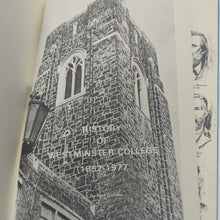 HISTORY
OF
WESTMINSTER COLLEGE
(1852-1977)